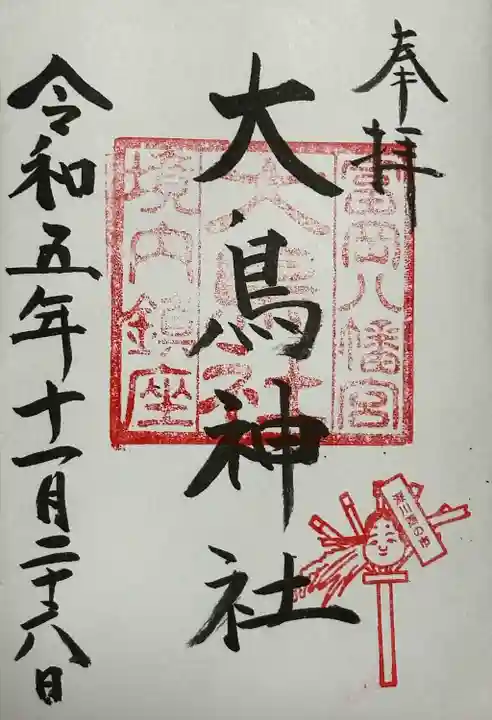 奉拝
富岡八幡宮
大鳥神社
大鳥神社
境内鎮座
令和五年十一月二十八日
深川酉の市